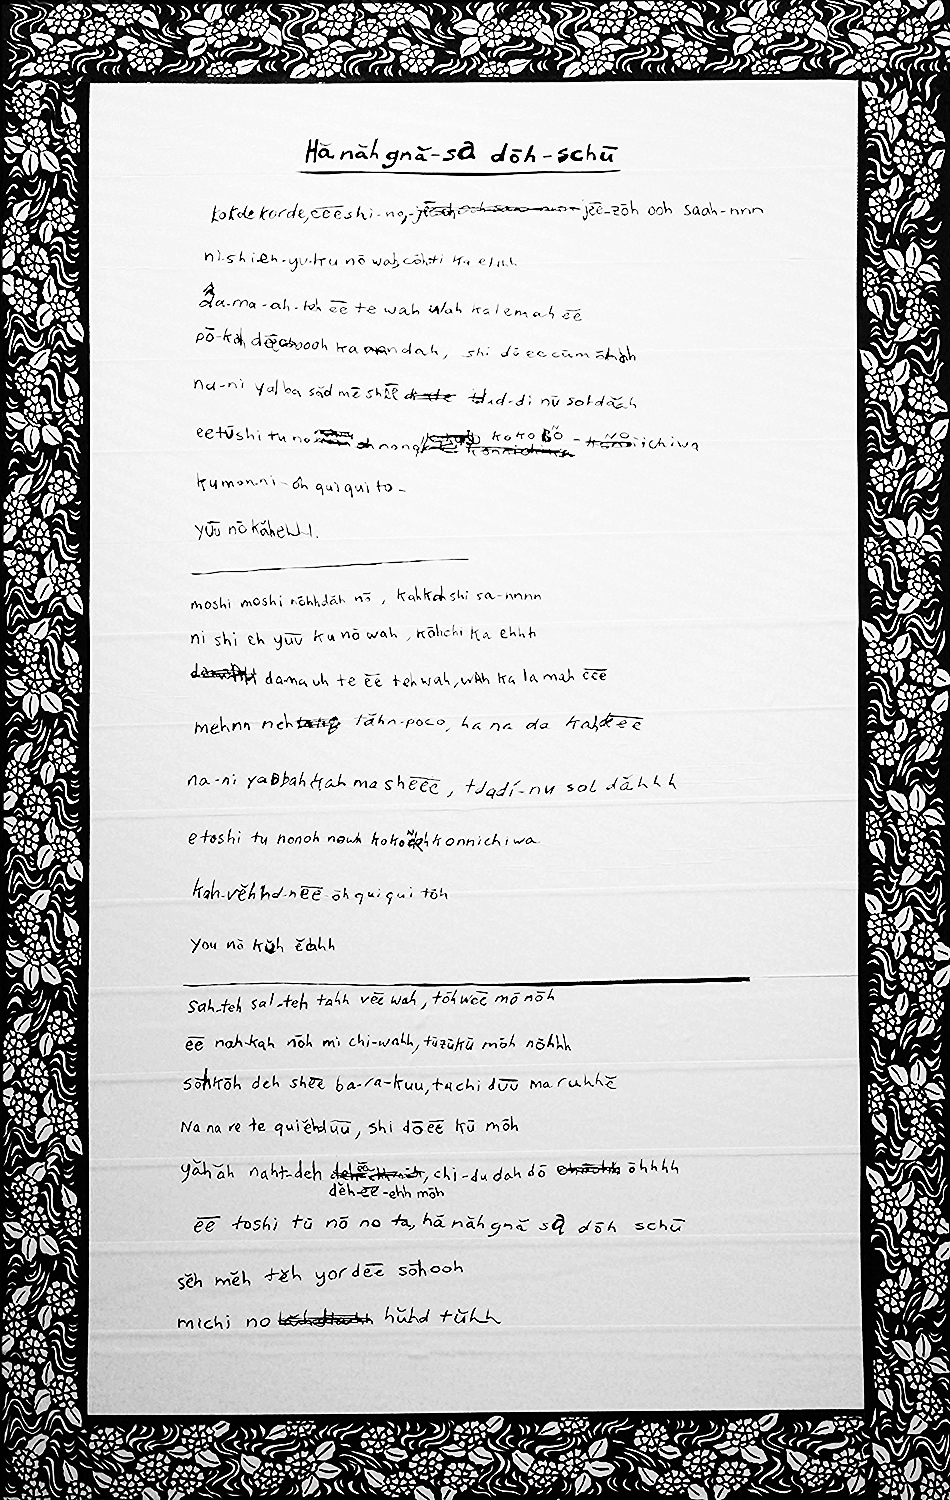 Hănăhgnă-sa dōh-schū
kokde korde, ēēēshi-no, jēē-zōh ooh saah-nnn
ni shi eh-yu-ku nō wah cōhti ka ehhh
da-ma-ah-teh ēē te wah wah kalemah ēē
pō-kah ooh ka dah, shi dō
na-ni yabba săd mē shēē di nū sol dăch
eetūshi tu no nong koko NŌ ichiwa
kumonni-ōh qui qui to-
yūū nō kăhehhh.
moshi moshi nōhhdăh nō, kahkahshi sa-nnnn
ni shi eh yūū ku nō wah, kōhchi ka ehhh
damauh te ēē teh wah, wah ka la mah ēēē
mehnn neh tăhn-poco, ha na da kahdēēē
na-ni yabbahkah ma shēēē, tdadí-nu sol dăhhh
etoshi tu nonoh nowh koko konnichiwa
kah-vĕhhd-nēē ōh qui qui tōh
you nō kŭh ĕahh
sah-teh sal-teh tahh vēē wah, tōh wēē mō nōh
ēē nah-kah nōh mi chi-wahh, tūzūkū mōh nōhhh
sōhkōh deh shēē ba-ra-kuu, tachi dūū maruhhĕ
Na na re te quiĕhdūū, shi dōēē kū mōh
yăhăh naht-deh, chi-du dah dō ōhhhh
dĕh-ēē-ehh mōh
ēē toshi tū nō no ta, hă năhgnă sa dōh schū
sĕh mĕh tĕh yor dēē sōhooh
michi no hŭhd tŭhh